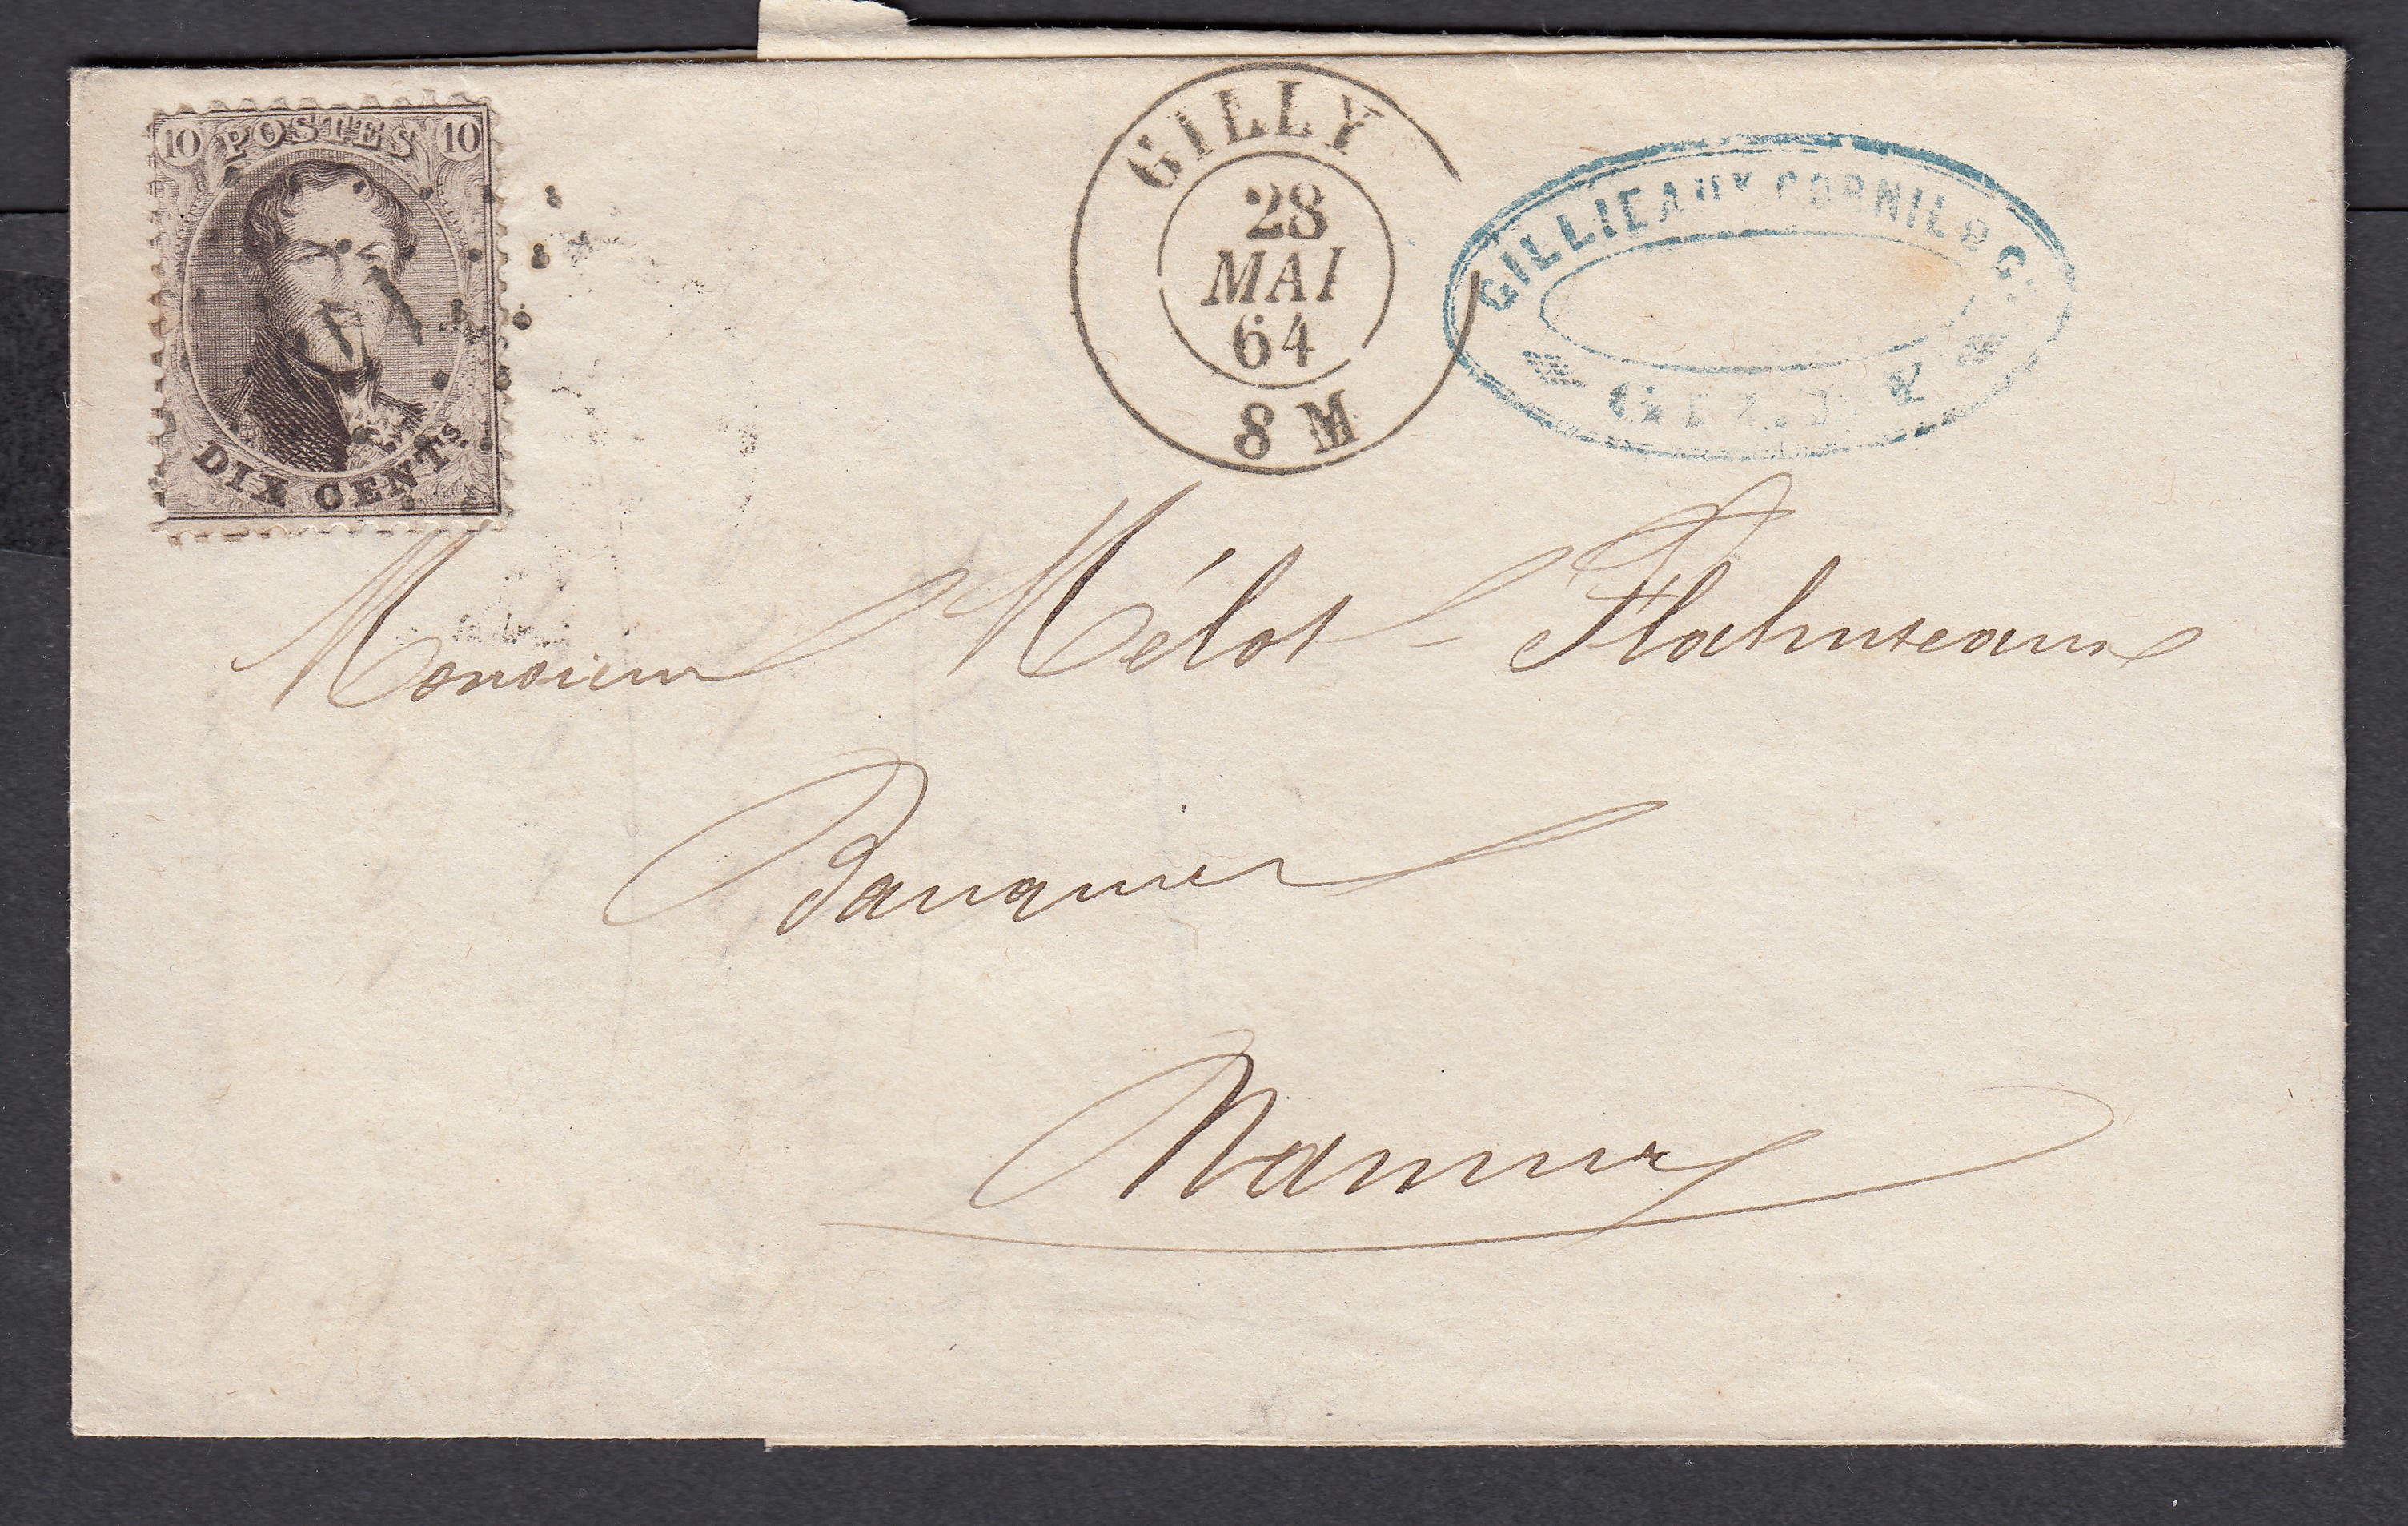 10 POSTES 10
DIX CENTS.
GILLY
28
MAI
64
8 M
GILLIEAUX CORNIL & C.
GILLY
Monsieur Mélot-Flahuteaux
Banquier
Namur